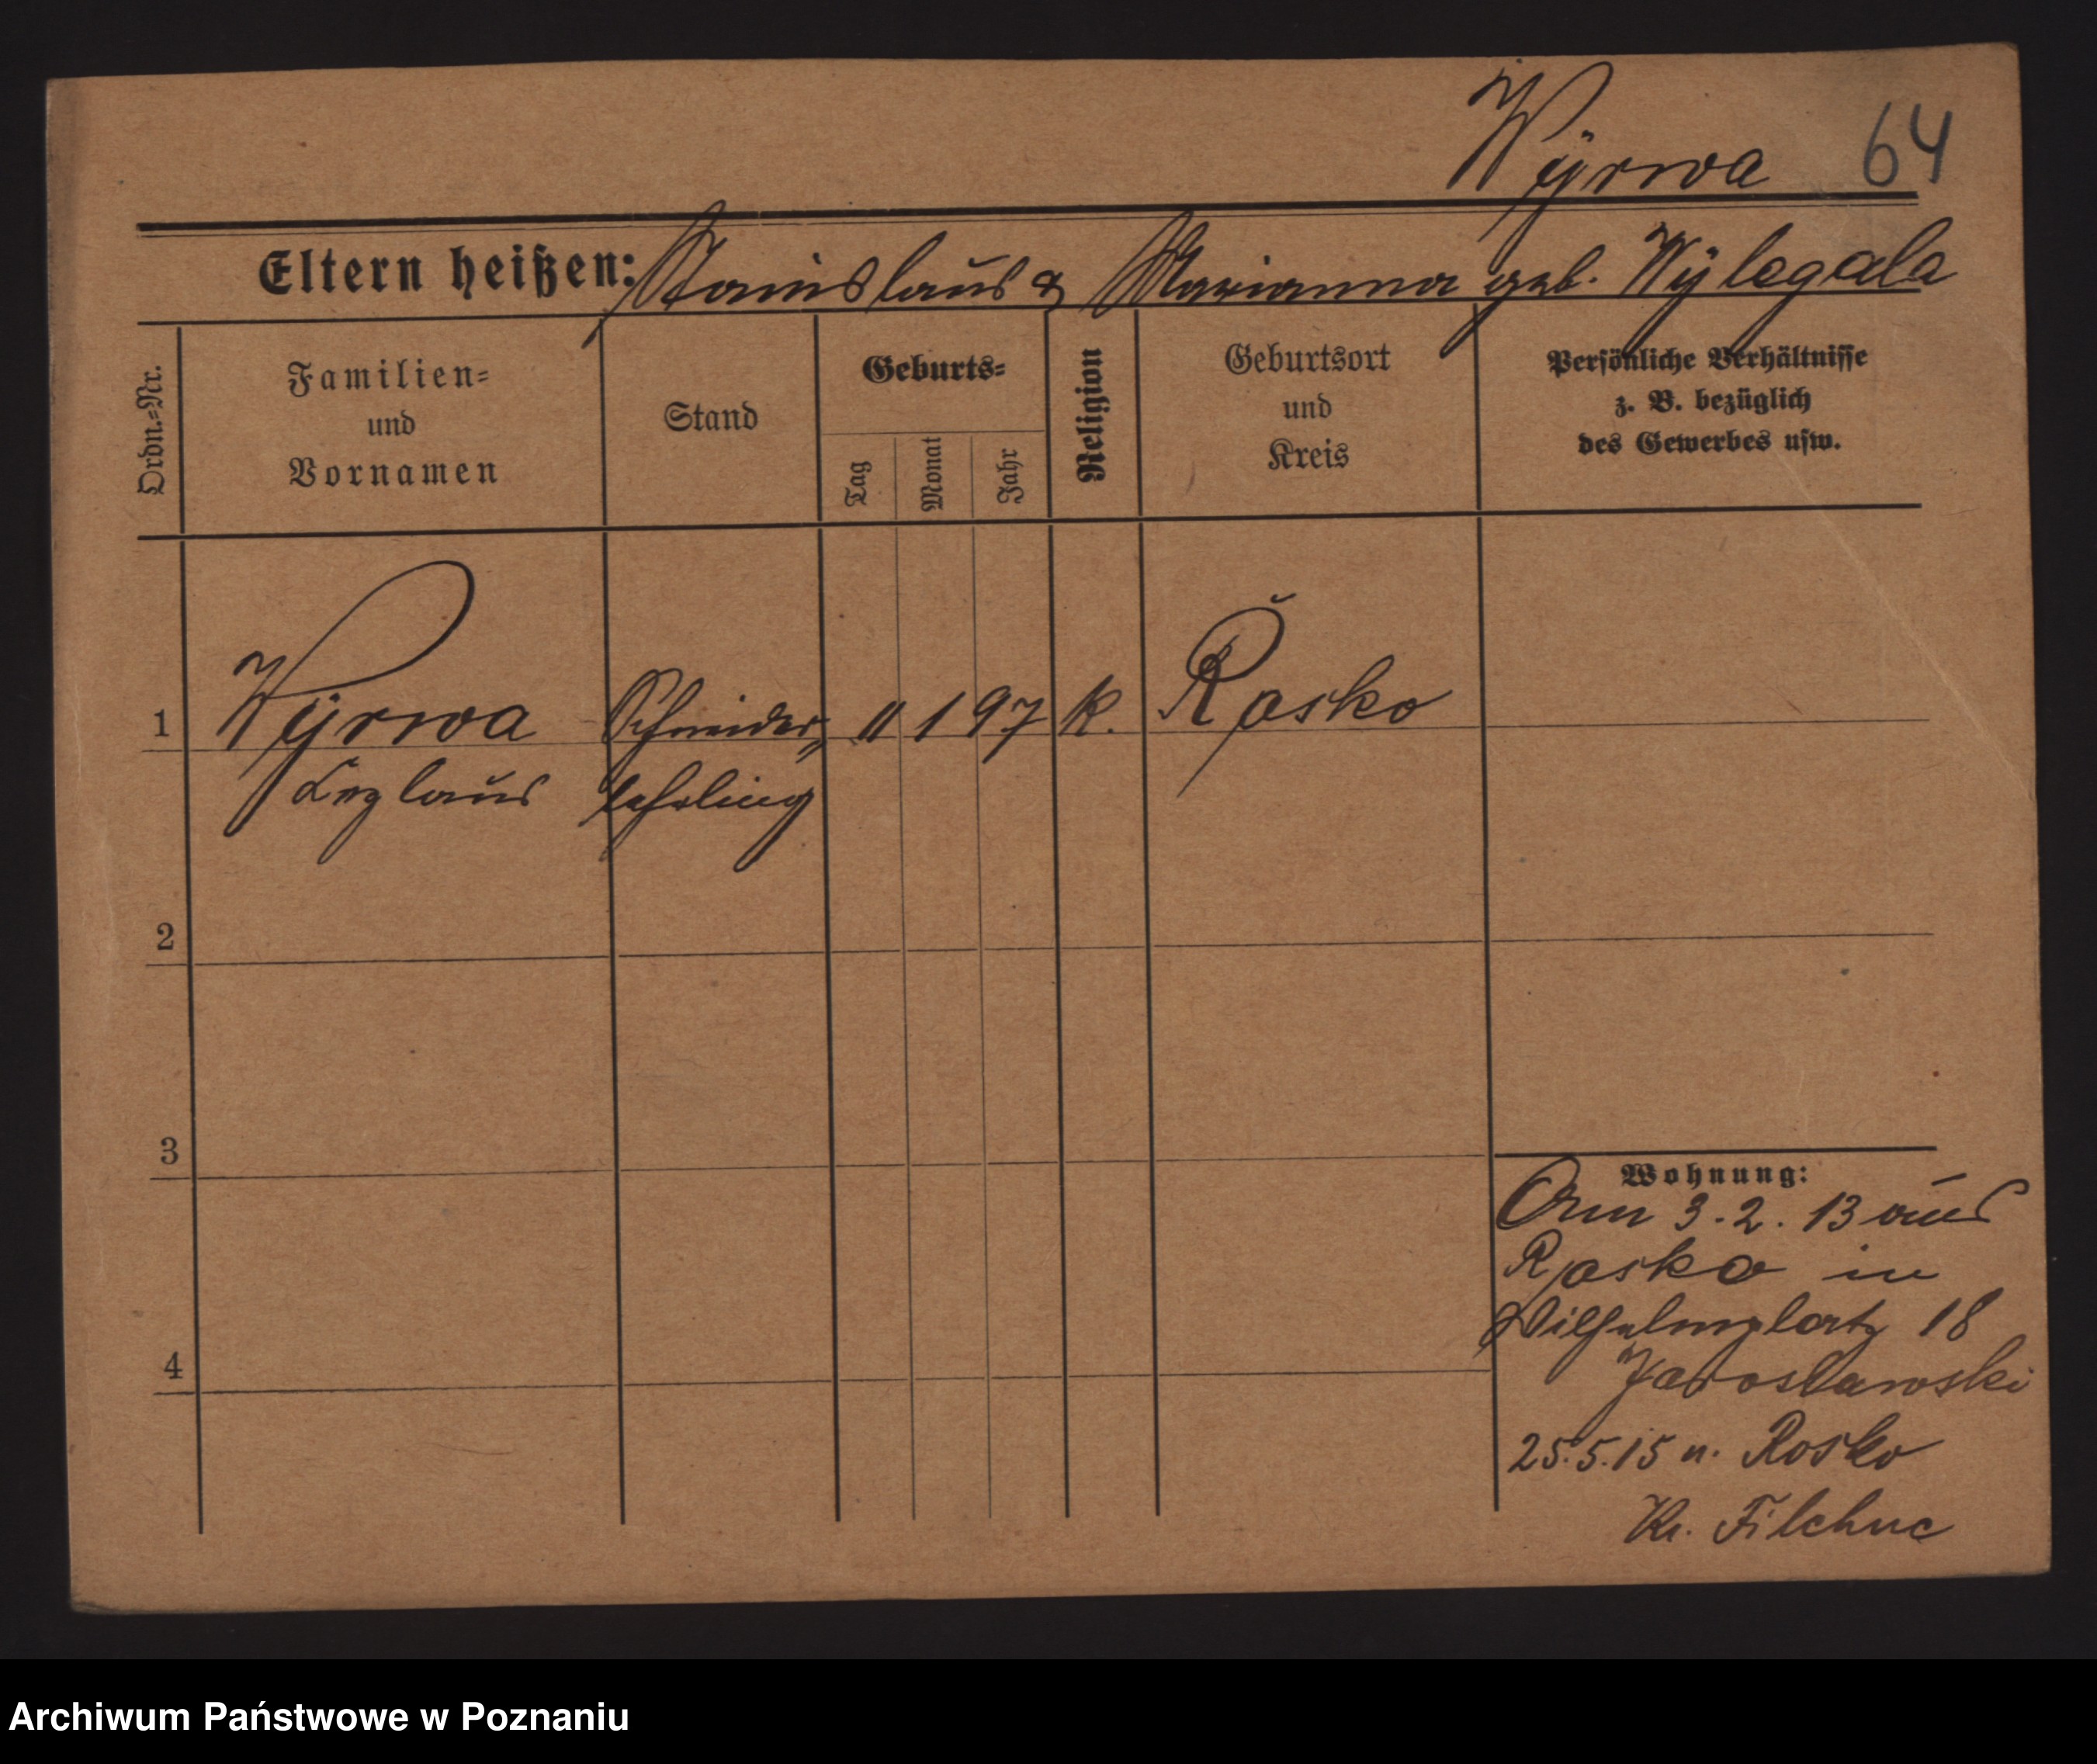 Wyrwa 64
Eltern heißen: Stanislaus & Marianna geb. Wylegala
Ordn.=Nr.
Familien=
und
Vornamen
Stand
Geburts=
Tag
Monat
Jahr
Religion
Geburtsort
und
Kreis
Persönliche Verhältnisse
z. B. bezüglich
des Gewerbes usw.
1 Wyrwa Schneider= 11 1 97 K. Rosko
lehrling
2
3
4
Wohnung:
3.2.13 aus
Rosko in
Wilhelmplatz 18
Jaroslawski
25.5.15 n. Rosko
Kr. Filehne
Archiwum Państwowe w Poznaniu